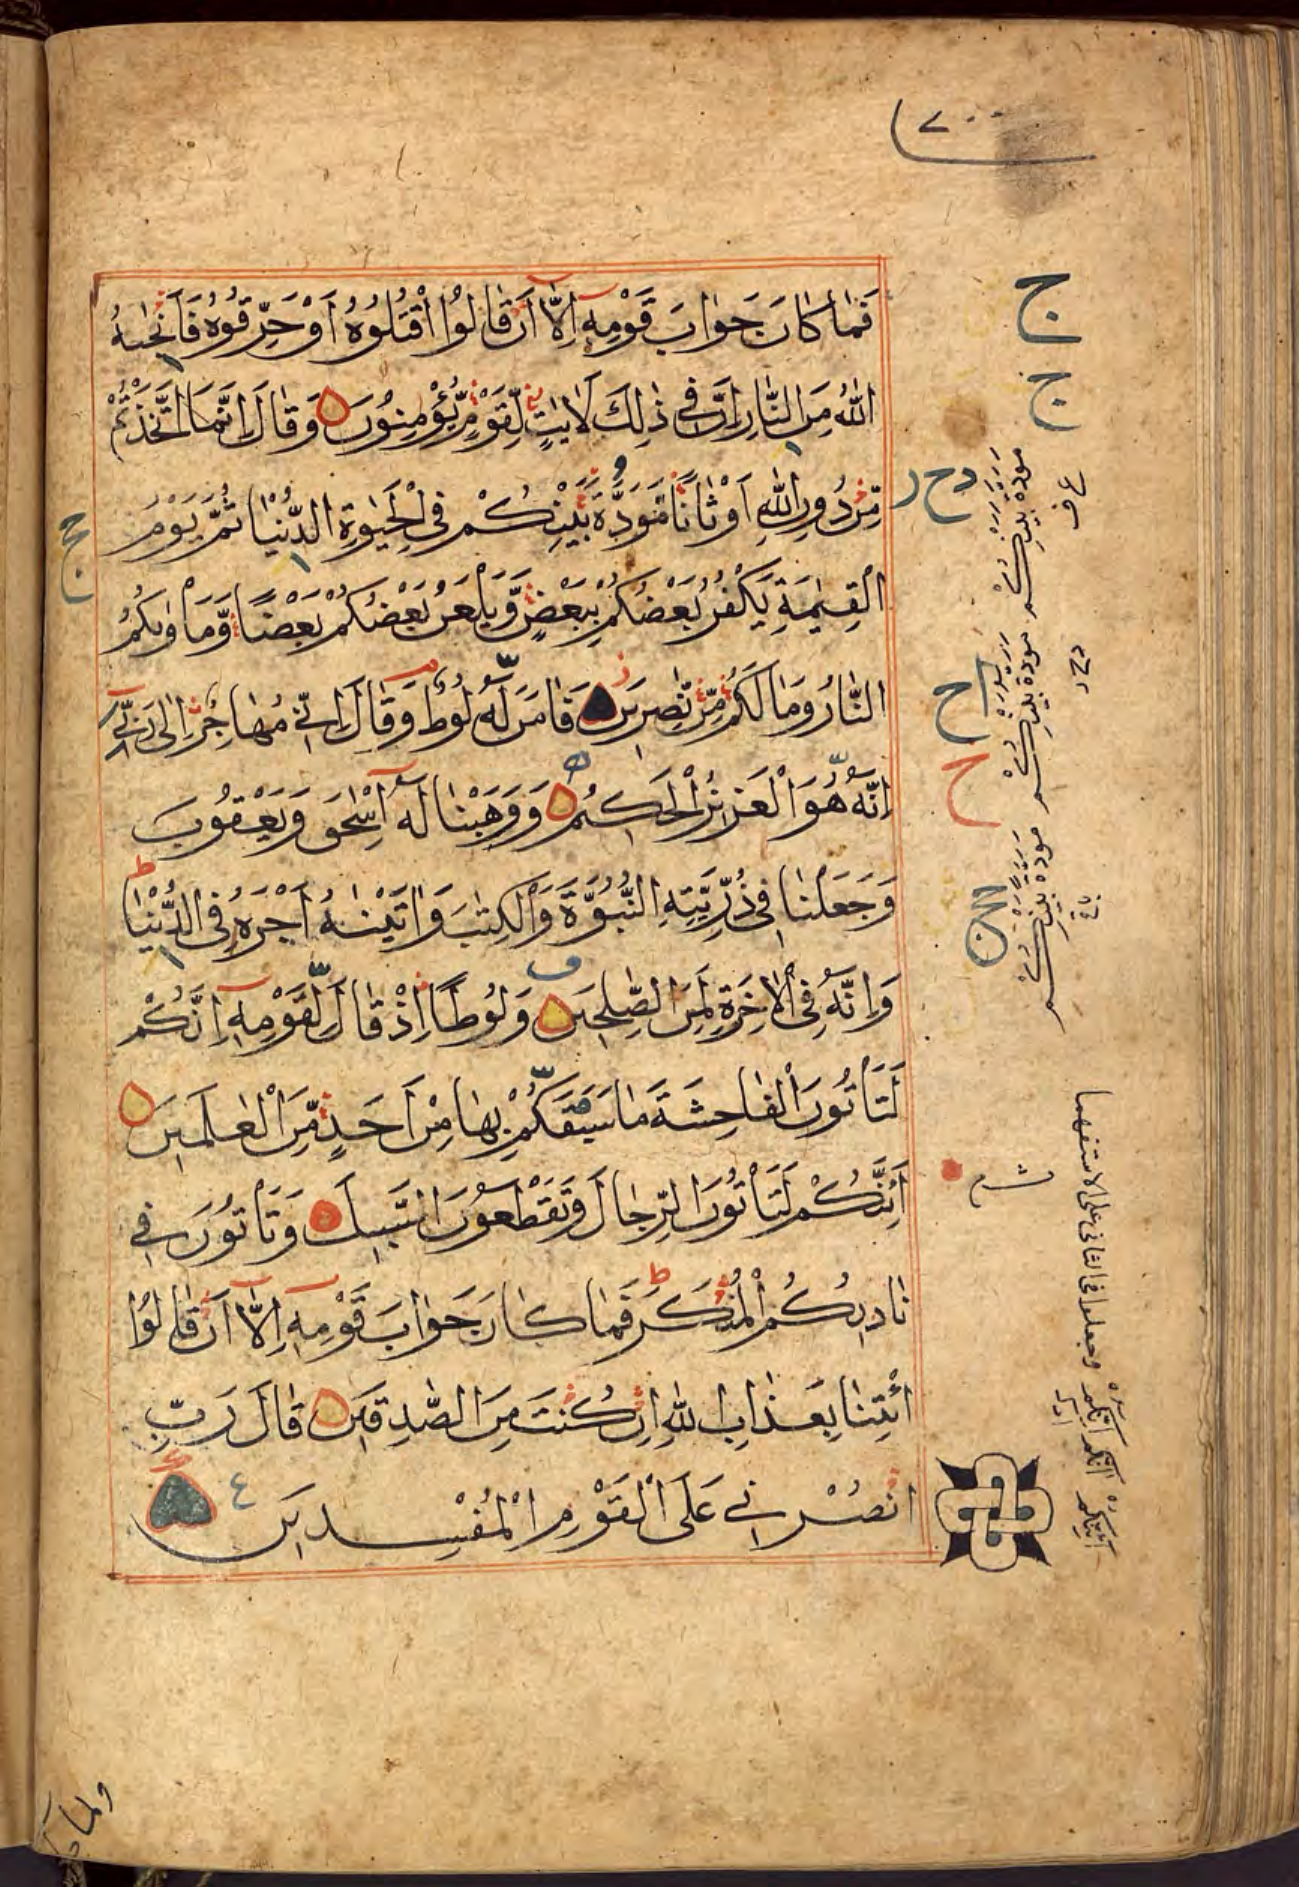 فَمَا كَانَ جَوَابَ قَوْمِهٖٓ اِلَّآ اَنْ قَالُوا اقْتُلُوْهُ اَوْ حَرِّقُوْهُ فَاَنْجٰىهُ
اللّٰهُ مِنَ النَّارِ اِنَّ فِيْ ذٰلِكَ لَاٰيٰتٍ لِّقَوْمٍ يُّؤْمِنُوْنَ وَقَالَ اِنَّمَا اتَّخَذْتُمْ
مِّنْ دُوْنِ اللّٰهِ اَوْثَانًا مَّوَدَّةَ بَيْنِكُمْ فِي الْحَيٰوةِ الدُّنْيَا ثُمَّ يَوْمَ
الْقِيٰمَةِ يَكْفُرُ بَعْضُكُمْ بِبَعْضٍ وَّيَلْعَنُ بَعْضُكُمْ بَعْضًا وَّمَاْوٰىكُمُ
النَّارُ وَمَا لَكُمْ مِّنْ نّٰصِرِيْنَ فَاٰمَنَ لَهٗ لُوْطٌ وَقَالَ اِنِّيْ مُهَاجِرٌ اِلٰى رَبِّيْ
اِنَّهٗ هُوَ الْعَزِيْزُ الْحَكِيْمُ وَوَهَبْنَا لَهٗٓ اِسْحٰقَ وَيَعْقُوْبَ
وَجَعَلْنَا فِيْ ذُرِّيَّتِهِ النُّبُوَّةَ وَالْكِتٰبَ وَاٰتَيْنٰهُ اَجْرَهٗ فِي الدُّنْيَا
وَاِنَّهٗ فِي الْاٰخِرَةِ لَمِنَ الصّٰلِحِيْنَ وَلُوْطًا اِذْ قَالَ لِقَوْمِهٖٓ اِنَّكُمْ
لَتَاْتُوْنَ الْفَاحِشَةَ مَا سَبَقَكُمْ بِهَا مِنْ اَحَدٍ مِّنَ الْعٰلَمِيْنَ
اَئِنَّكُمْ لَتَاْتُوْنَ الرِّجَالَ وَتَقْطَعُوْنَ السَّبِيْلَ وَتَاْتُوْنَ فِيْ
نَادِيْكُمُ الْمُنْكَرَ فَمَا كَانَ جَوَابَ قَوْمِهٖٓ اِلَّآ اَنْ قَالُوا
ائْتِنَا بِعَذَابِ اللّٰهِ اِنْ كُنْتَ مِنَ الصّٰدِقِيْنَ قَالَ رَبِّ
انْصُرْنِيْ عَلَى الْقَوْمِ الْمُفْسِدِيْنَ
ع
ج
ج
دح
ح
ح
ج
مودة بينكم
مودة بينكم
مودة بينكم
وجعلوا فى الثانى على الاستفهما
ولما